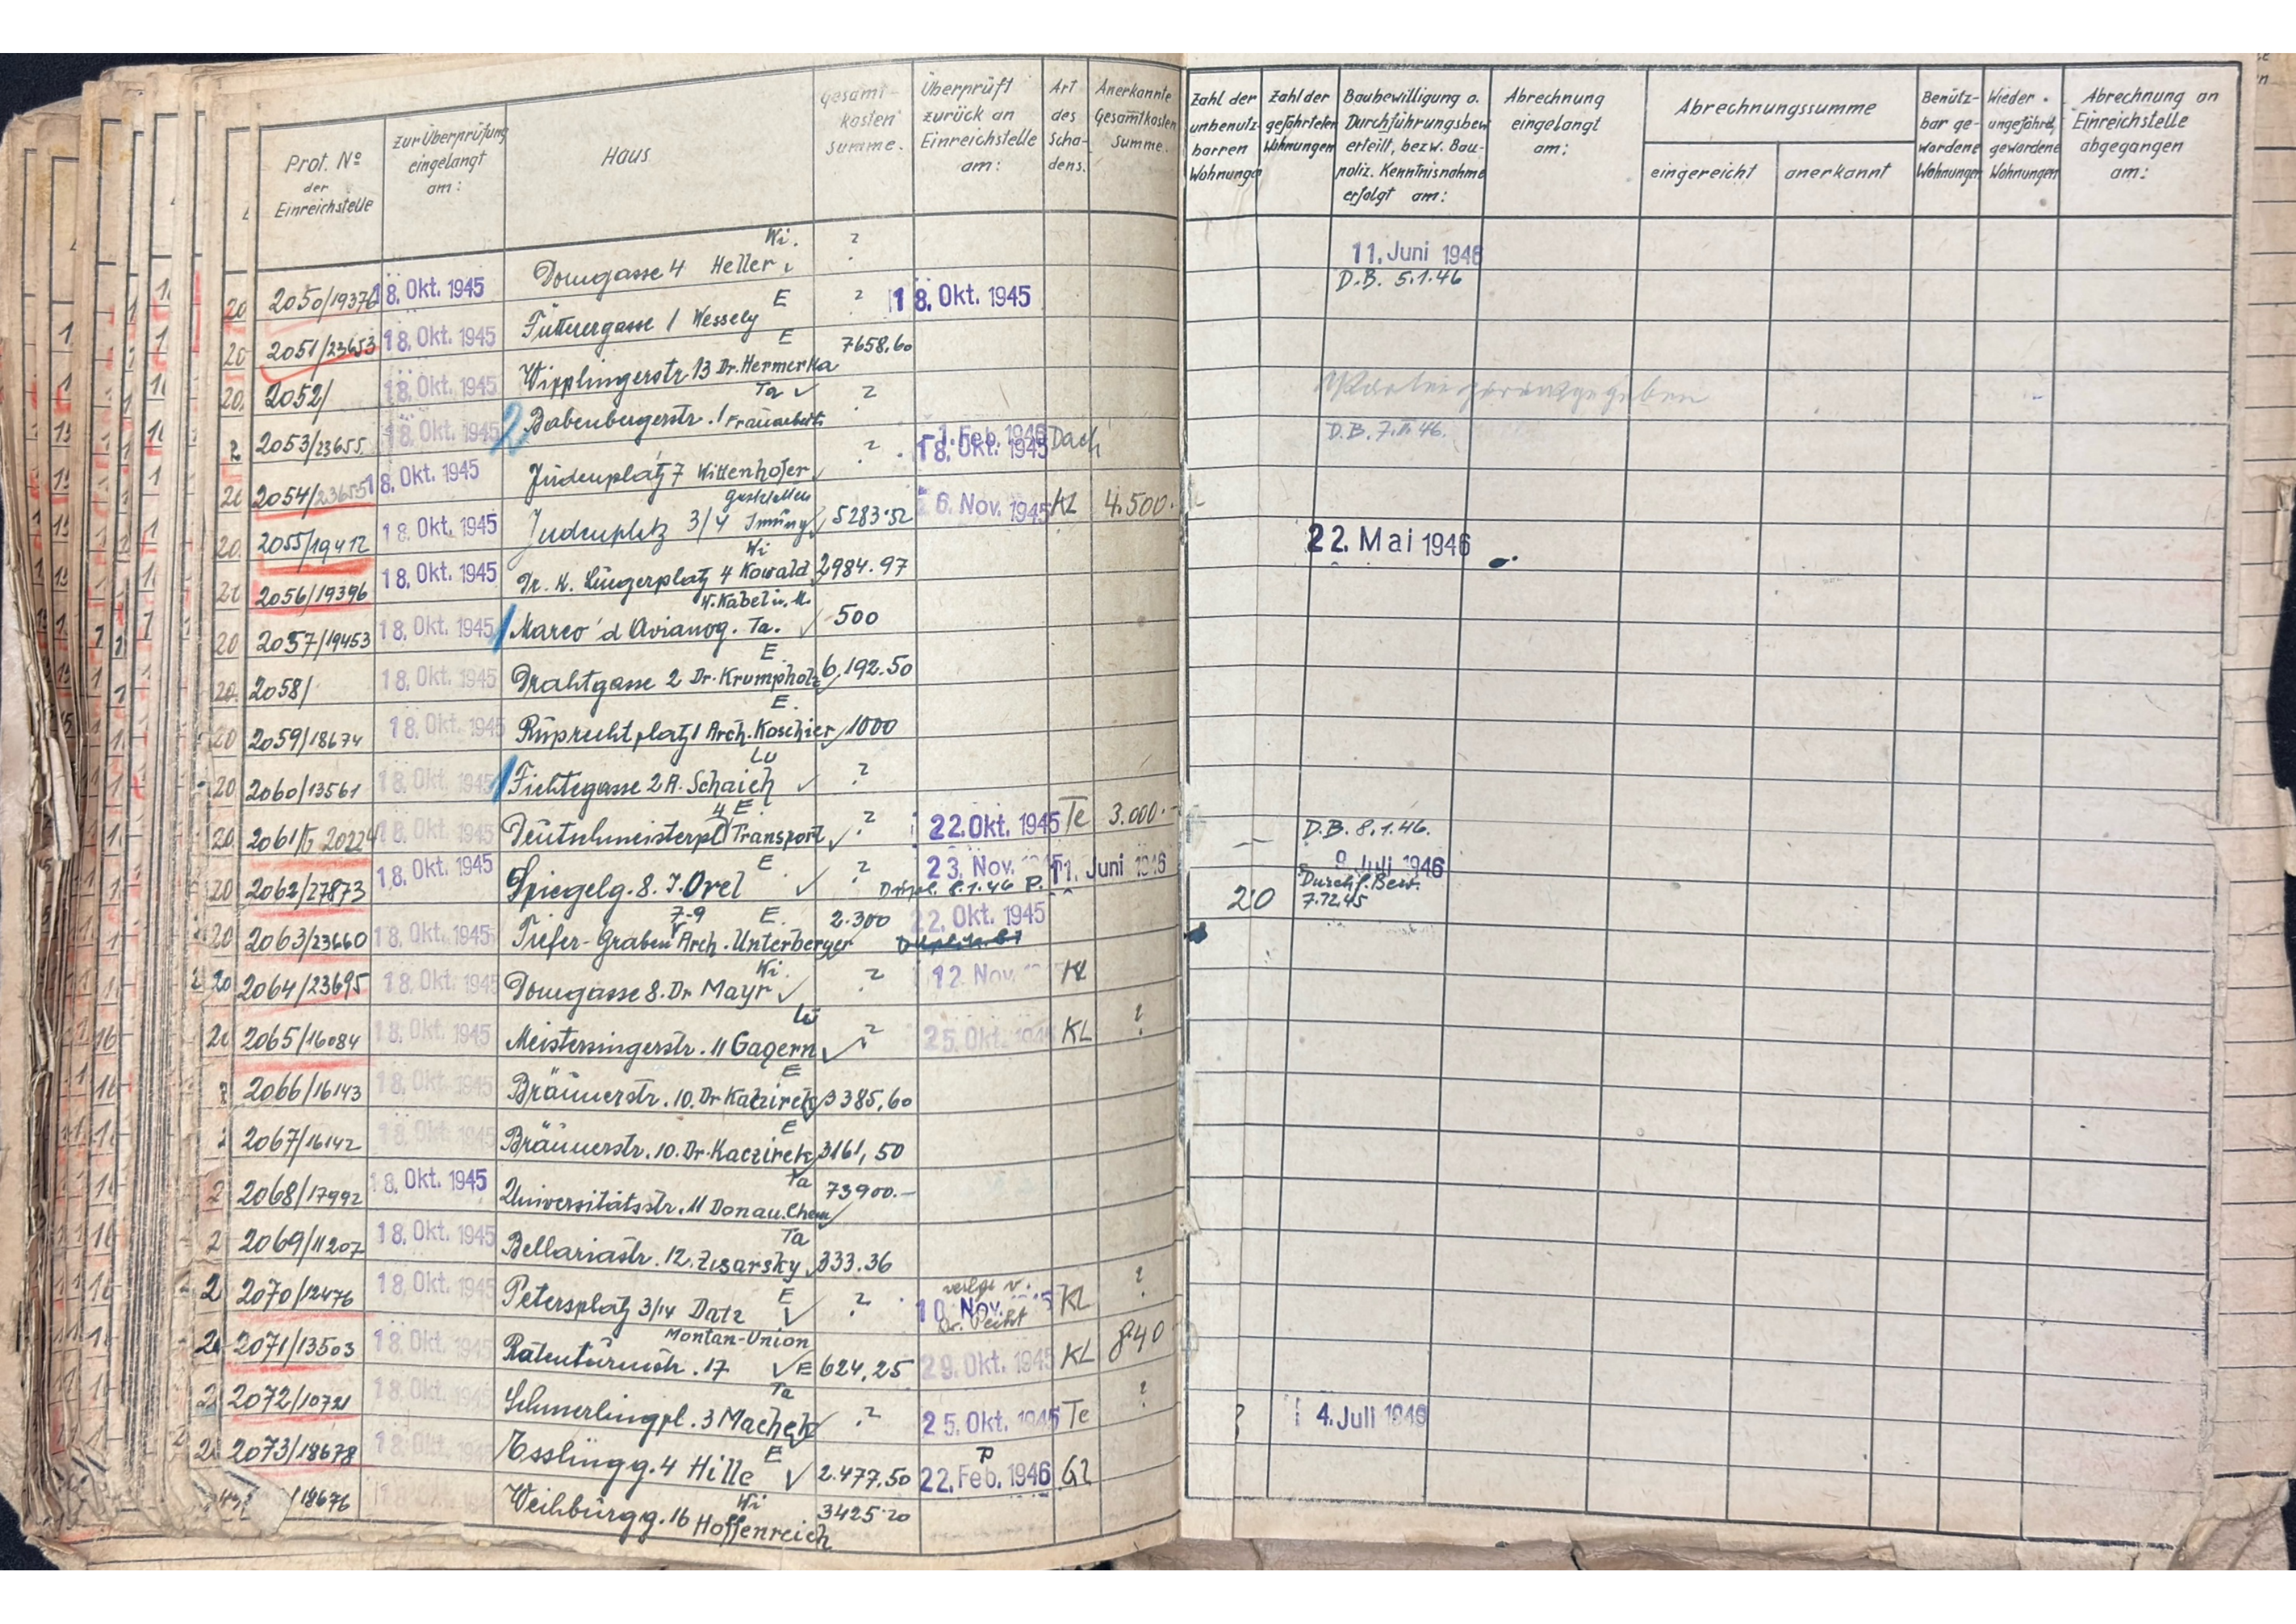 Prot. No der Einreichstelle
zur Überprüfung eingelangt am:
Haus
Gesamt-kosten summe.
Überprüft zurück an Einreichstelle am:
Art des Scha-dens.
Anerkannte Gesamtkosten Summe.
Zahl der unbenutz-barren Wohnungen
Zahl der gefährteten Wohnungen
Baubewilligung o. Durchführungsbew. erteilt, bezw. Bau-poliz. Kenntnisnahme erfolgt am:
Abrechnung eingelangt am:
Abrechnungssumme
eingereicht
anerkannt
Benütz-bar ge-wordene Wohnungen
Wieder ungefährd. gewordene Wohnungen
Abrechnung an Einreichstelle abgegangen am:
2050/19376 18. Okt. 1945 Domgasse 4 Heller Wi. ? 11. Juni 1946 D.B. 5.1.46
2051/23653 18. Okt. 1945 Fütterergasse 1 Wessely E ? 18. Okt. 1945
2052/ 18. Okt. 1945 Wipplingerstr. 13 Dr. Hermerka E 7658,60
2053/23655 18. Okt. 1945 Babenbergerstr. 1 Ta ?
2054/23655 18. Okt. 1945 Judenplatz 7 Wittenhofer ? 1. Feb. 1946 18. Okt. 1945 Dach D.B. 7.II.46.
2055/19412 18. Okt. 1945 Judenplatz 3/4 5283.52 26. Nov. 1945 KL 4.500.-
2056/19396 18. Okt. 1945 Dr. K. Luegerplatz 4 Kowald Wi 2984.97 22. Mai 1946
2057/19453 18. Okt. 1945 Marco d'Avianog. Ta. W. Kabel u. M. 500
2058/ 18. Okt. 1945 Drahtgasse 2 Dr. Krumpholz E 6.192.50
2059/18674 18. Okt. 1945 Ruprechtplatz 1 Arch. Koschier E. 1000
2060/13561 18. Okt. 1945 Fichtegasse 2 A. Schaich Lu ?
2061/ 20224 18. Okt. 1945 Deutschmeisterpl. 4 Transport E. ? 22. Okt. 1945 Te 3.000.- D.B. 8.1.46.
2062/27873 18. Okt. 1945 Spiegelg. 8. J. Orel E ? 23. Nov. 11. Juni 1946 8.1.46 P. 20 9. Juli 1946 Durchf. Bew. 7.12.45
2063/23660 18. Okt. 1945 Tiefer-Graben 7-9 Arch. Unterberger E. 2.300 22. Okt. 1945
2064/23695 18. Okt. 1945 Domgasse 8. Dr Mayr Wi. ? 12. Nov. KL
2065/16084 18. Okt. 1945 Meistersingerstr. 11 Gagern Lu ? 25. Okt. 1945 KL ?
2066/16143 18. Okt. 1945 Bräunerstr. 10. Dr Kaczirek E 3385,60
2067/16142 18. Okt. 1945 Bräunerstr. 10. Dr. Kaczirek E 3161,50
2068/17992 18. Okt. 1945 Universitätsstr. 11 Donau. Chem Ta 73900.-
2069/11207 18. Okt. 1945 Bellariastr. 12. Zisarsky Ta 333.36
2070/12476 18. Okt. 1945 Petersplatz 3/14 Datz E ? 10. Nov. KL ?
2071/13503 18. Okt. 1945 Rotenturmstr. 17 Montan-Union E 624,25 29. Okt. 1945 KL 840
2072/10721 18. Okt. 1945 Schmerlingpl. 3 Machek Ta ? 25. Okt. 1945 Te ? ? 4. Juli 1946
2073/18678 18. Okt. 1945 Essling g. 4 Hille E 2.477,50 P 22. Feb. 1946 Gl
/18676 18. Okt. Weihburg g. 16 Hoffenreich Wi 3425.20